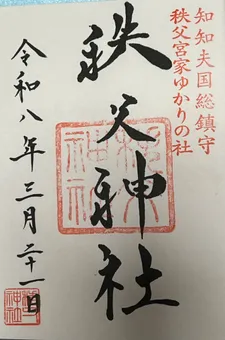 知知夫国総鎮守
秩父宮家ゆかりの社
秩父神社
令和八年三月二十一日